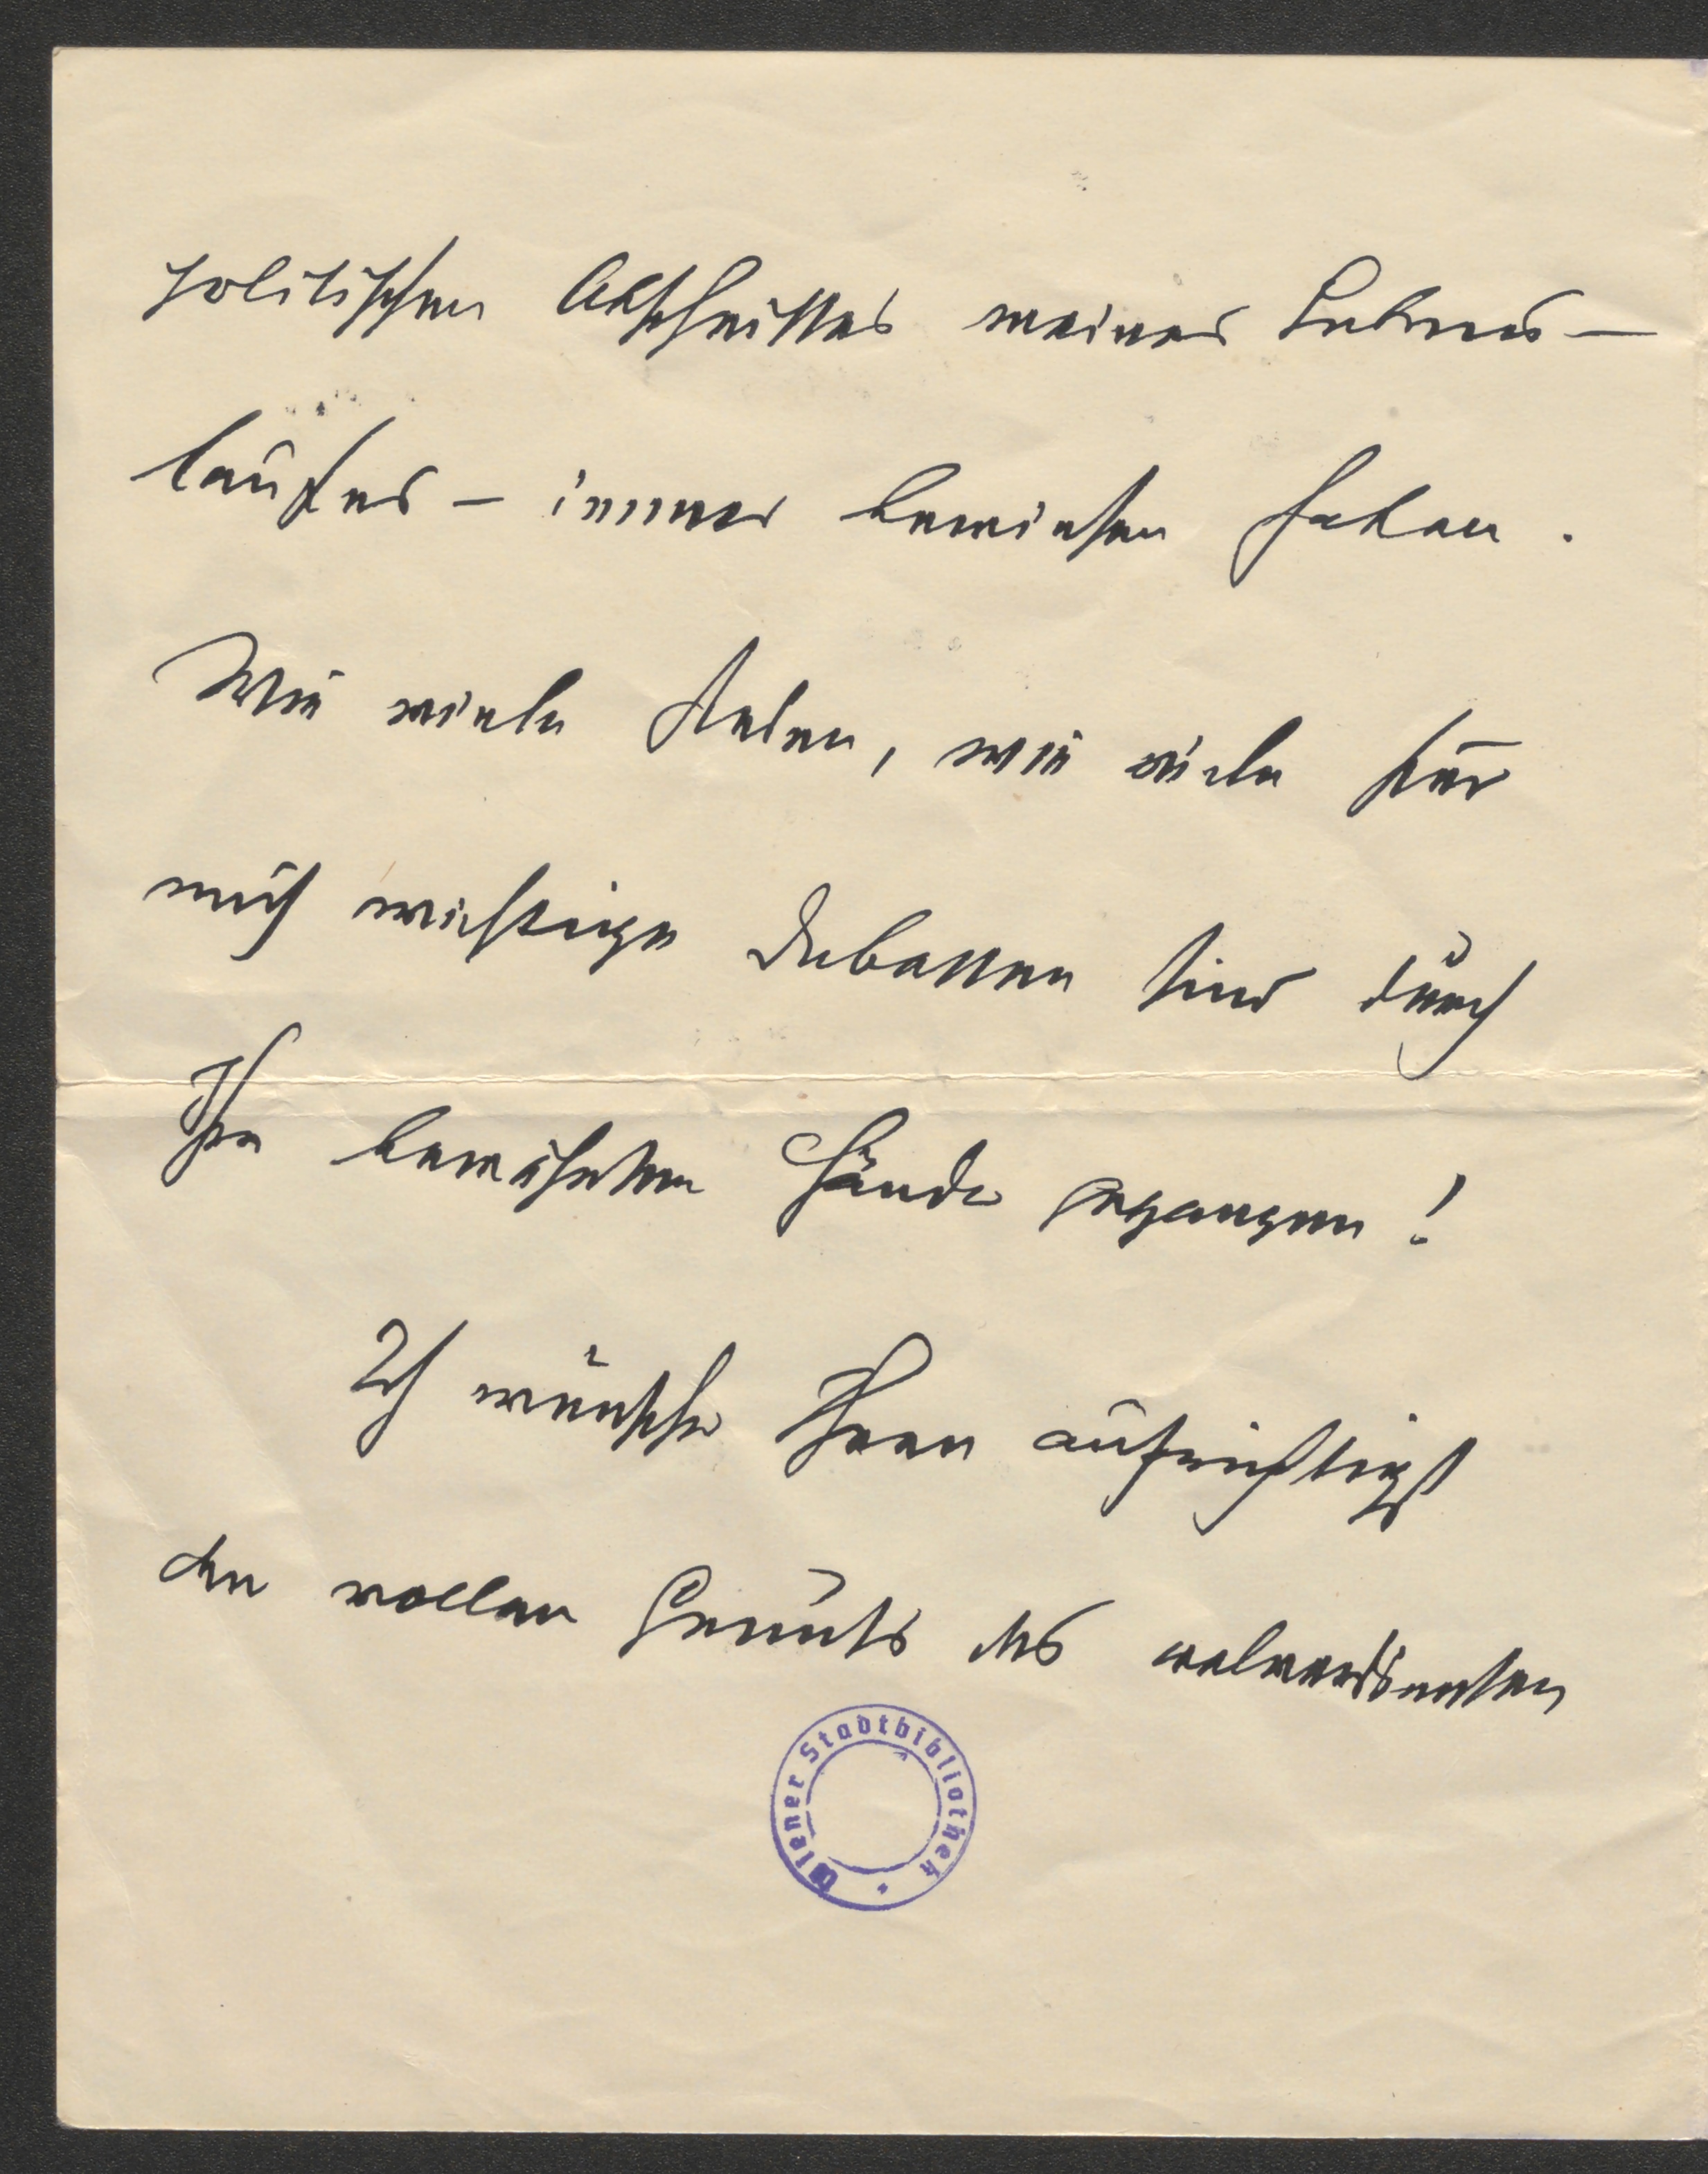 politischen Abschnittes meines Lebens-
laufes – immer bewiesen haben.
Wie viele Reden, wie viele für
mich wichtige Debatten sind durch
Ihre bewährten Hände gegangen!
Ich wünsche Ihnen aufrichtigst
den vollen Genuss des wolverdienten
Wiener Stadtbibliothek